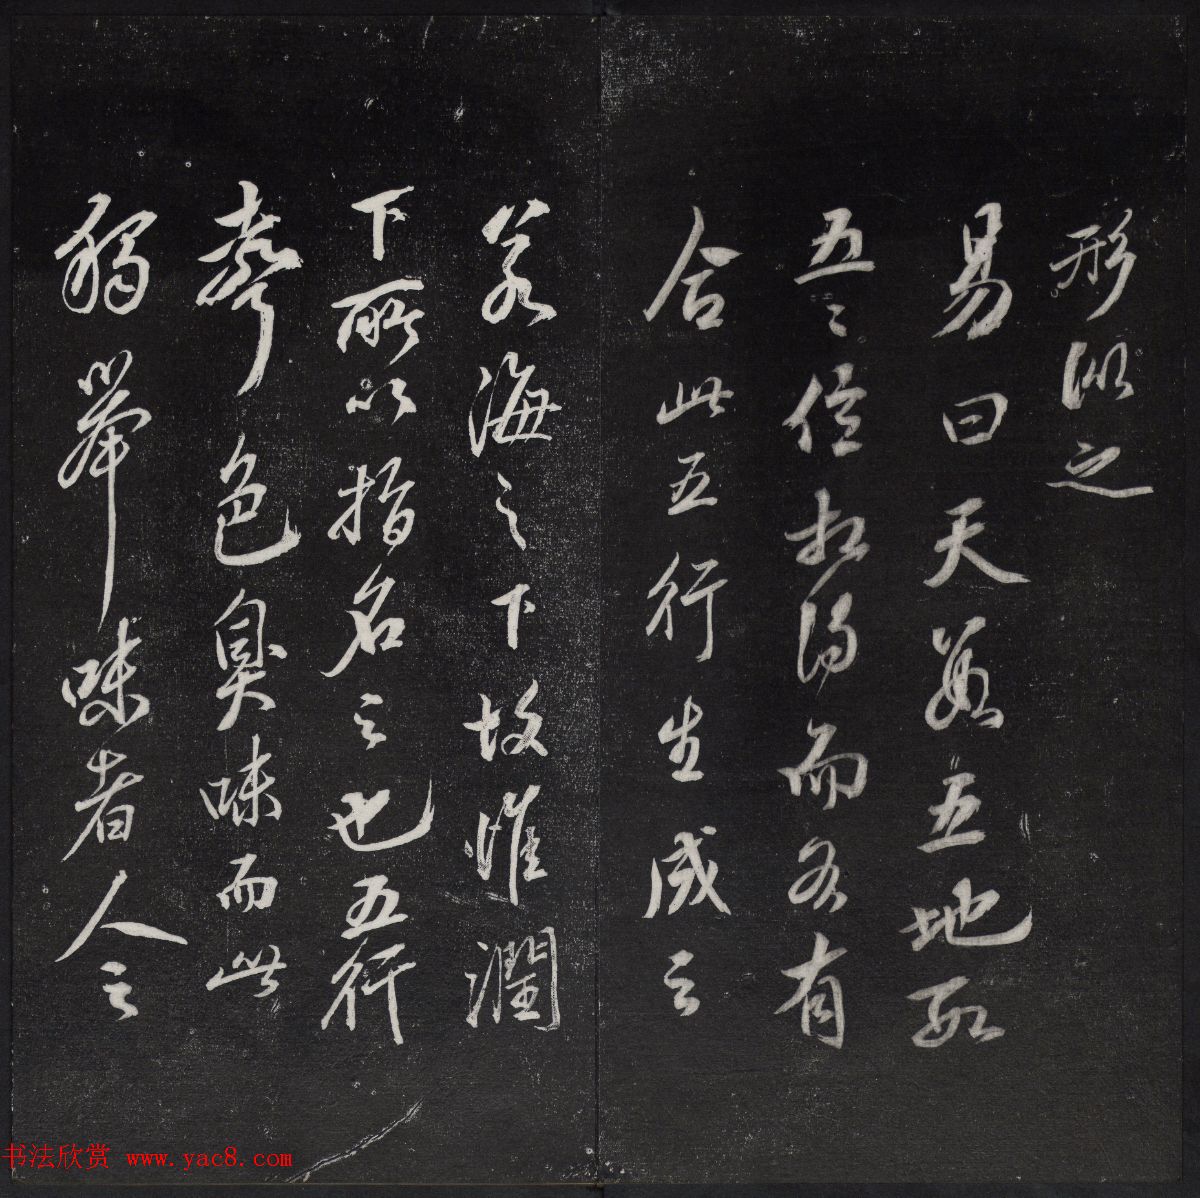 形似之
易曰天數五地數
五五位相得而各有
合此五行生成之
若海之下故惟潤
下所以指名之也五行
有聲色臭味而此
獨舉味者人之
书法欣赏 www.yac8.com